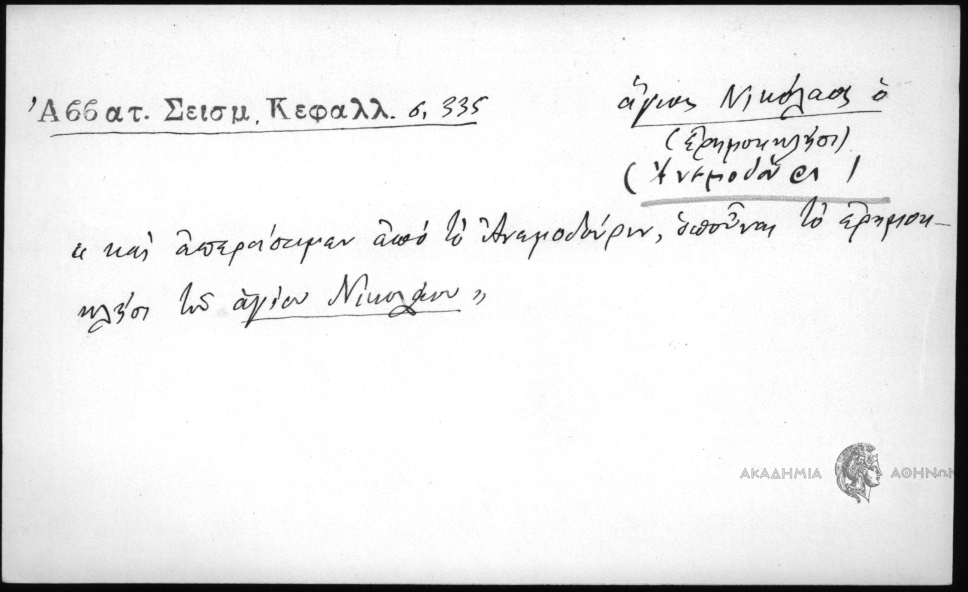 Ἀββατ. Σεισμ. Κεφαλλ. σ. 335
ἅγιος Νικόλαος ὁ
(ἐρημοκκλῆσι)
(Ἀνεμοδούρι)
"καὶ ἀπεράσαμαν ἀπό τὸ Ἀνεμοδούριν, ὁποῦναι τὸ ἐρημοκ-
κλῆσι τοῦ ἁγίου Νικολάου"
ΑΚΑΔΗΜΙΑ ΑΘΗΝΩΝ